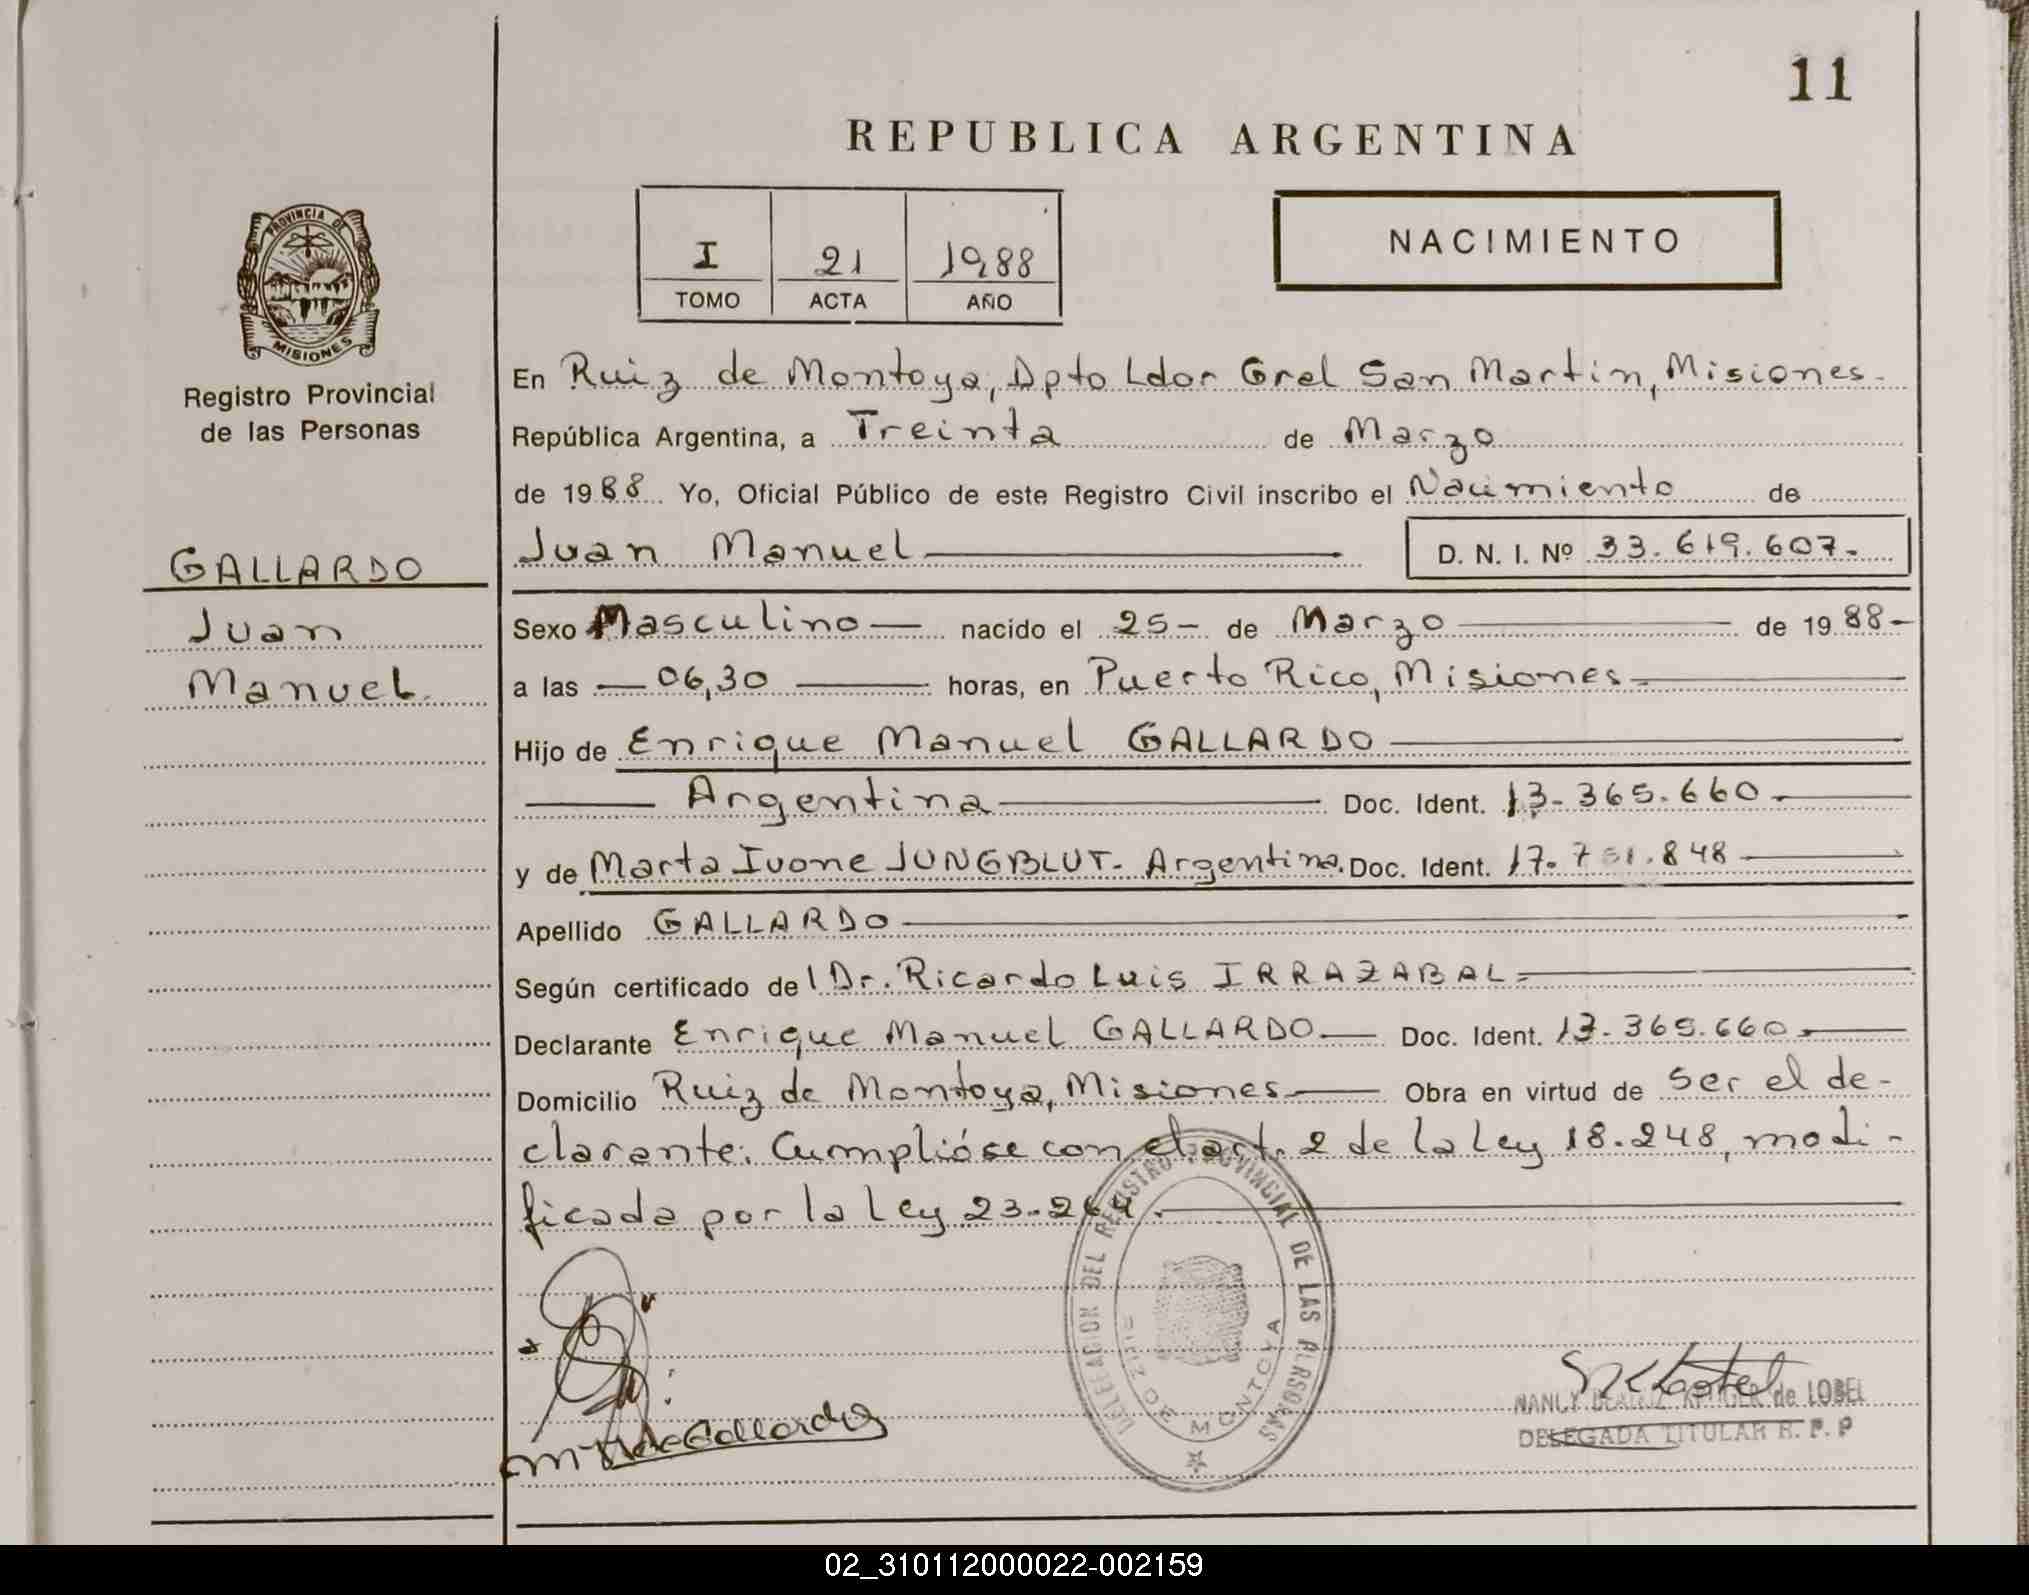 11
REPUBLICA ARGENTINA
PROVINCIA DE
MISIONES
Registro Provincial
de las Personas
GALLARDO
Juan
Manuel.
I 21 1988
TOMO ACTA AÑO
NACIMIENTO
En Ruiz de Montoya, Dpto Ldor Gral San Martin, Misiones.
República Argentina, a Treinta de Marzo
de 1988 Yo, Oficial Público de este Registro Civil inscribo el Nacimiento de
Juan Manuel D. N. I. Nº 33.619.607.
Sexo Masculino nacido el 25 de Marzo de 1988
a las 06,30 horas, en Puerto Rico, Misiones
Hijo de Enrique Manuel GALLARDO
Argentina Doc. Ident. 13.365.660
y de Marta Ivone JUNGBLUT. Argentina. Doc. Ident. 17. .848
Apellido GALLARDO
Según certificado del Dr. Ricardo Luis IRRAZABAL
Declarante Enrique Manuel GALLARDO Doc. Ident. 13.365.660
Domicilio Ruiz de Montoya, Misiones Obra en virtud de ser el de-
clarante. Cumplióse con el art. 2 de la Ley 18.248, modi-
ficada por la Ley 23.264.
DELEGACION DEL REGISTRO PROVINCIAL DE LAS PERSONAS
RUIZ DE MONTOYA
de Gallardo
NANCY BEATRIZ KRUGER de LOBEL
DELEGADA TITULAR R. P. P
02_310112000022-002159